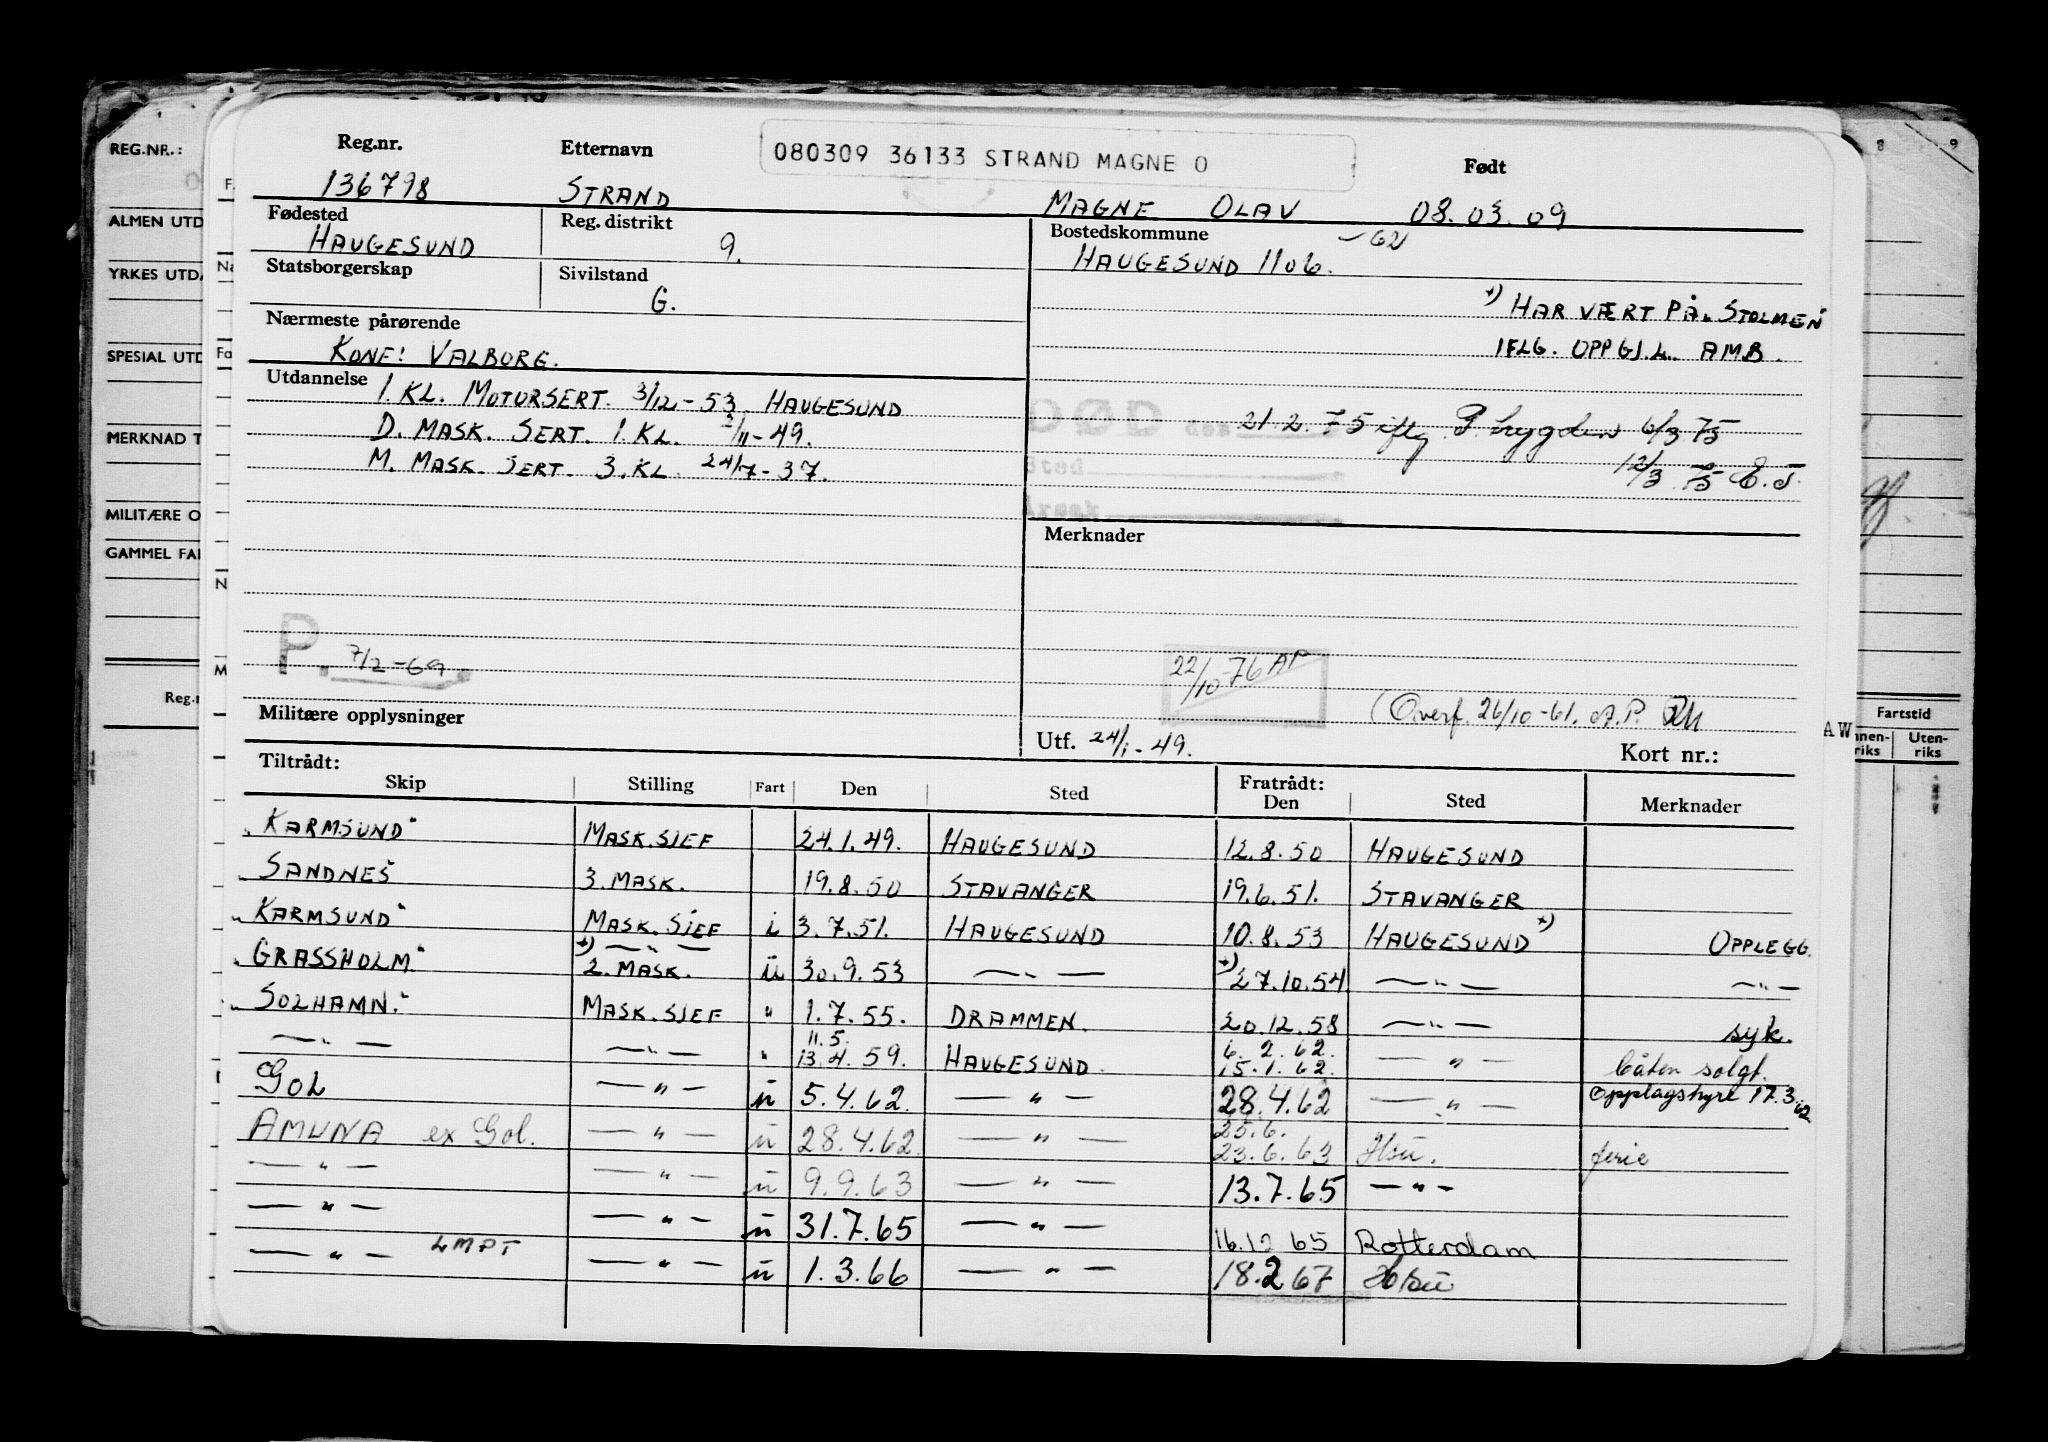 REG.NR.:
ALMEN UTD
YRKES UTDA
SPESIAL UTD
MERKNAD T
MILITÆRE O
GAMMEL FAR
Reg.nr. Etternavn 080309 36133 STRAND MAGNE O Født
136798 STRAND MAGNE OLAV 08.03.09
Fødested Reg. distrikt Bostedskommune
HAUGESUND 9. HAUGESUND 1106. -62
Statsborgerskap Sivilstand
G.
+) HAR VÆRT PÅ "STOLMEN"
IFLG. OPPGJ. L. AMB.
Nærmeste pårørende
KONE: VALBORG.
Utdannelse
1. KL. MOTORSERT. 3/12-53 HAUGESUND
D. MASK. SERT. 1. KL. 2/11-49.
M. MASK. SERT. 3. KL. 24/7-37.
DØD den 21.2.75 iflg. P. trygden 6/3 75
Sted 12/3 75 E.J.
Merknader
P. 7/2-69.
22/10-76 AP
(Overf. 26/10-61. A.P.
Militære opplysninger
Utf. 24/1-49. Kort nr.:
AW
8 9
Fartstid
Innen-riks Uten-riks
Tiltrådt: Fratrådt:
Skip Stilling Fart Den Sted Den Sted Merknader
"KARMSUND" MASK.SJEF 24.1.49. HAUGESUND 12.8.50 HAUGESUND
"SANDNES" 3. MASK. 19.8.50 STAVANGER 19.6.51. STAVANGER
"KARMSUND" MASK.SJEF i 3.7.51. HAUGESUND 10.8.53 HAUGESUND +) OPPLEGG.
"GRASSHOLM" +) —"— 2. MASK. u 30.9.53 —"— +) 27.10.54 —"— —"—
"SOLHAMN" MASK.SJEF " 1.7.55. DRAMMEN. 20.12.58 —"— syk.
—"— —"— " 11.5. 13.4.59. HAUGESUND 6.2.62. 15.1.62. —"— båten solgt.
GOL —"— u 5.4.62. —"— 28.4.62 —"— Opplagshyre 17.3.62
AMUNA ex Gol. —"— u 28.4.62 —"— 25.6. 23.6.63 Hsu. ferie
—"— —"— u 9.9.63 —"— 13.7.65 —"—
—"— —"— u 31.7.65 —"— 16.12 65 Rotterdam
—"— LMPT —"— u 1.3.66 —"— 18.2 67